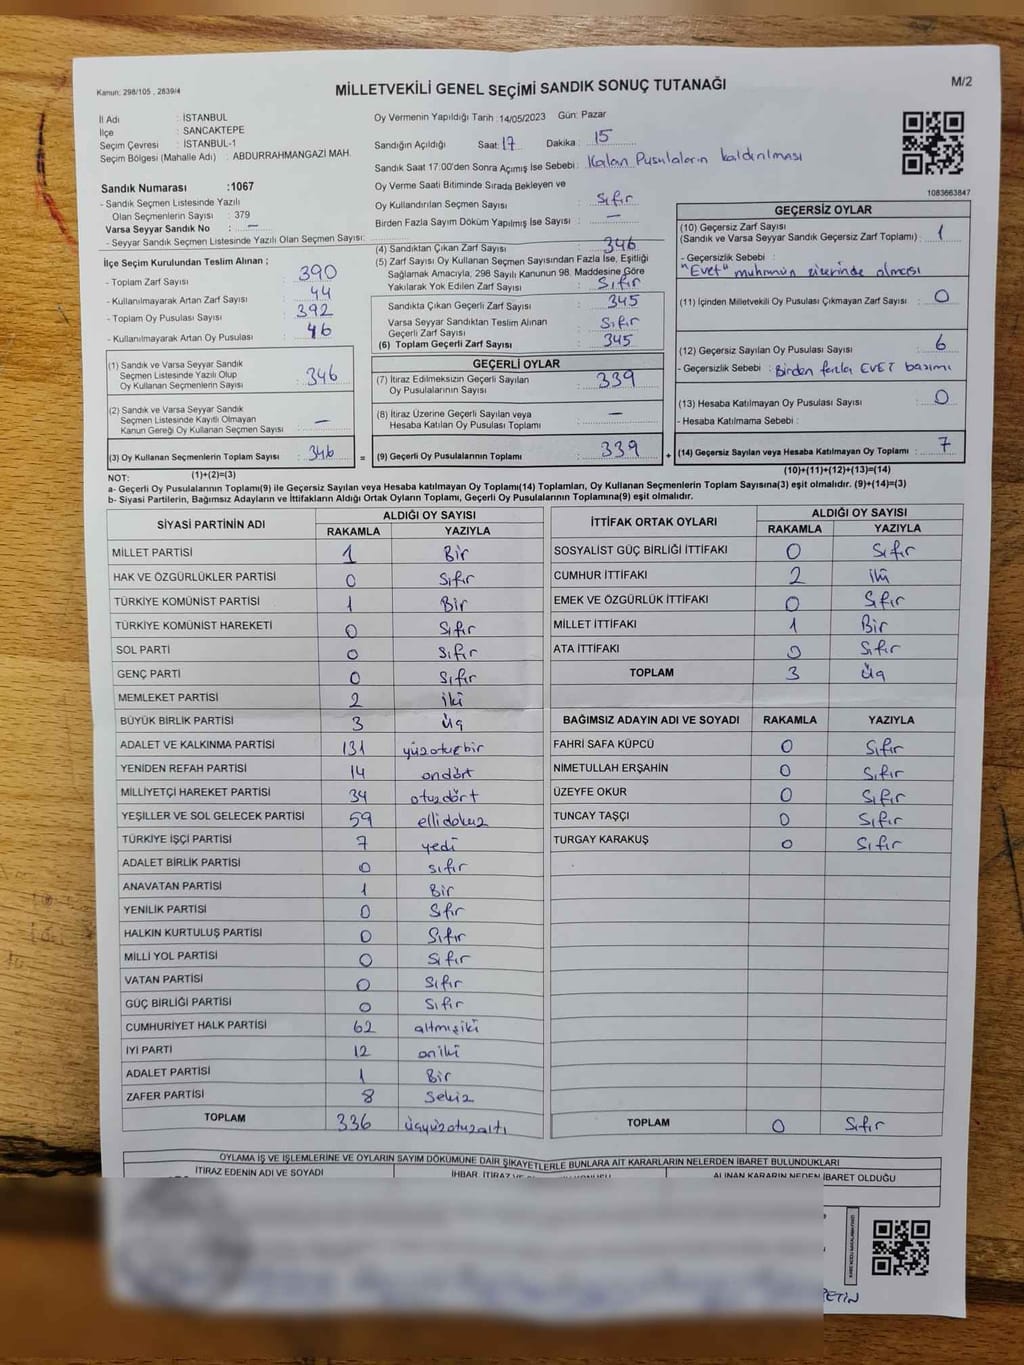 Kanun: 298/105 , 2839/4
MİLLETVEKİLİ GENEL SEÇİMİ SANDIK SONUÇ TUTANAĞI
M/2
İl Adı : İSTANBUL
İlçe : SANCAKTEPE
Seçim Çevresi : İSTANBUL-1
Seçim Bölgesi (Mahalle Adı) : ABDURRAHMANGAZİ MAH.
Sandık Numarası :1067
- Sandık Seçmen Listesinde Yazılı
Olan Seçmenlerin Sayısı : 379
Varsa Seyyar Sandık No : —
- Seyyar Sandık Seçmen Listesinde Yazılı Olan Seçmen Sayısı:
İlçe Seçim Kurulundan Teslim Alınan ;
- Toplam Zarf Sayısı : 390
- Kullanılmayarak Artan Zarf Sayısı : 44
- Toplam Oy Pusulası Sayısı : 392
- Kullanılmayarak Artan Oy Pusulası : 46
(1) Sandık ve Varsa Seyyar Sandık
Seçmen Listesinde Yazılı Olup
Oy Kullanan Seçmenlerin Sayısı : 346
(2) Sandık ve Varsa Seyyar Sandık
Seçmen Listesinde Kayıtlı Olmayan
Kanun Gereği Oy Kullanan Seçmen Sayısı : —
(3) Oy Kullanan Seçmenlerin Toplam Sayısı : 346 =
(1)+(2)=(3)
Oy Vermenin Yapıldığı Tarih :14/05/2023 Gün: Pazar
Sandığın Açıldığı Saat: 17 Dakika : 15
Sandık Saat 17:00'den Sonra Açımış İse Sebebi : Kalan Pusulaların kaldırılması
Oy Verme Saati Bitiminde Sırada Bekleyen ve
Oy Kullandırılan Seçmen Sayısı : Sıfır
Birden Fazla Sayım Döküm Yapılmış İse Sayısı : —
(4) Sandıktan Çıkan Zarf Sayısı : 346
(5) Zarf Sayısı Oy Kullanan Seçmen Sayısından Fazla İse, Eşitliği
Sağlamak Amacıyla, 298 Sayılı Kanunun 98. Maddesine Göre
Yakılarak Yok Edilen Zarf Sayısı : Sıfır
Sandıkta Çıkan Geçerli Zarf Sayısı : 345
Varsa Seyyar Sandıktan Teslim Alınan
Geçerli Zarf Sayısı : Sıfır
(6) Toplam Geçerli Zarf Sayısı : 345
GEÇERLİ OYLAR
(7) İtiraz Edilmeksizin Geçerli Sayılan
Oy Pusulalarının Sayısı : 339
(8) İtiraz Üzerine Geçerli Sayılan veya
Hesaba Katılan Oy Pusulası Toplamı : —
(9) Geçerli Oy Pusulalarının Toplamı : 339 +
1083663847
GEÇERSİZ OYLAR
(10) Geçersiz Zarf Sayısı
(Sandık ve Varsa Seyyar Sandık Geçersiz Zarf Toplamı) : 1
- Geçersizlik Sebebi :
"Evet" mührünün üzerinde olması
(11) İçinden Milletvekili Oy Pusulası Çıkmayan Zarf Sayısı : 0
(12) Geçersiz Sayılan Oy Pusulası Sayısı : 6
- Geçersizlik Sebebi : Birden fazla EVET basımı
(13) Hesaba Katılmayan Oy Pusulası Sayısı : 0
- Hesaba Katılmama Sebebi :
(14) Geçersiz Sayılan veya Hesaba Katılmayan Oy Toplamı : 7
(10)+(11)+(12)+(13)=(14)
NOT:
a- Geçerli Oy Pusulalarının Toplamı(9) ile Geçersiz Sayılan veya Hesaba Katılmayan Oy Toplamı(14) Toplamları, Oy Kullanan Seçmenlerin Toplam Sayısına(3) eşit olmalıdır. (9)+(14)=(3)
b- Siyasi Partilerin, Bağımsız Adayların ve İttifakların Aldığı Ortak Oyların Toplamı, Geçerli Oy Pusulalarının Toplamına(9) eşit olmalıdır.
SİYASİ PARTİNİN ADI ALDIĞI OY SAYISI
RAKAMLA YAZIYLA
MİLLET PARTİSİ 1 Bir
HAK VE ÖZGÜRLÜKLER PARTİSİ 0 Sıfır
TÜRKİYE KOMÜNİST PARTİSİ 1 Bir
TÜRKİYE KOMÜNİST HAREKETİ 0 Sıfır
SOL PARTİ 0 Sıfır
GENÇ PARTİ 0 Sıfır
MEMLEKET PARTİSİ 2 iki
BÜYÜK BİRLİK PARTİSİ 3 üç
ADALET VE KALKINMA PARTİSİ 131 yüzotuzbir
YENİDEN REFAH PARTİSİ 14 ondört
MİLLİYETÇİ HAREKET PARTİSİ 34 otuzdört
YEŞİLLER VE SOL GELECEK PARTİSİ 59 ellidokuz
TÜRKİYE İŞÇİ PARTİSİ 7 yedi
ADALET BİRLİK PARTİSİ 0 sıfır
ANAVATAN PARTİSİ 1 Bir
YENİLİK PARTİSİ 0 Sıfır
HALKIN KURTULUŞ PARTİSİ 0 Sıfır
MİLLİ YOL PARTİSİ 0 Sıfır
VATAN PARTİSİ 0 Sıfır
GÜÇ BİRLİĞİ PARTİSİ 0 Sıfır
CUMHURİYET HALK PARTİSİ 62 altmışiki
İYİ PARTİ 12 oniki
ADALET PARTİSİ 1 Bir
ZAFER PARTİSİ 8 Sekiz
TOPLAM 336 üçyüzotuzaltı
İTTİFAK ORTAK OYLARI ALDIĞI OY SAYISI
RAKAMLA YAZIYLA
SOSYALİST GÜÇ BİRLİĞİ İTTİFAKI 0 Sıfır
CUMHUR İTTİFAKI 2 iki
EMEK VE ÖZGÜRLÜK İTTİFAKI 0 Sıfır
MİLLET İTTİFAKI 1 Bir
ATA İTTİFAKI 0 Sıfır
TOPLAM 3 üç
BAĞIMSIZ ADAYIN ADI VE SOYADI RAKAMLA YAZIYLA
FAHRİ SAFA KÜPCÜ 0 Sıfır
NİMETULLAH ERŞAHİN 0 Sıfır
ÜZEYFE OKUR 0 Sıfır
TUNCAY TAŞÇI 0 Sıfır
TURGAY KARAKUŞ 0 Sıfır
TOPLAM 0 Sıfır
OYLAMA İŞ VE İŞLEMLERİNE VE OYLARIN SAYIM DÖKÜMÜNE DAİR ŞİKAYETLERLE BUNLARA AİT KARARLARIN NELERDEN İBARET BULUNDUKLARI
İTİRAZ EDENİN ADI VE SOYADI
ALINAN KARARIN NEDEN İBARET OLDUĞU